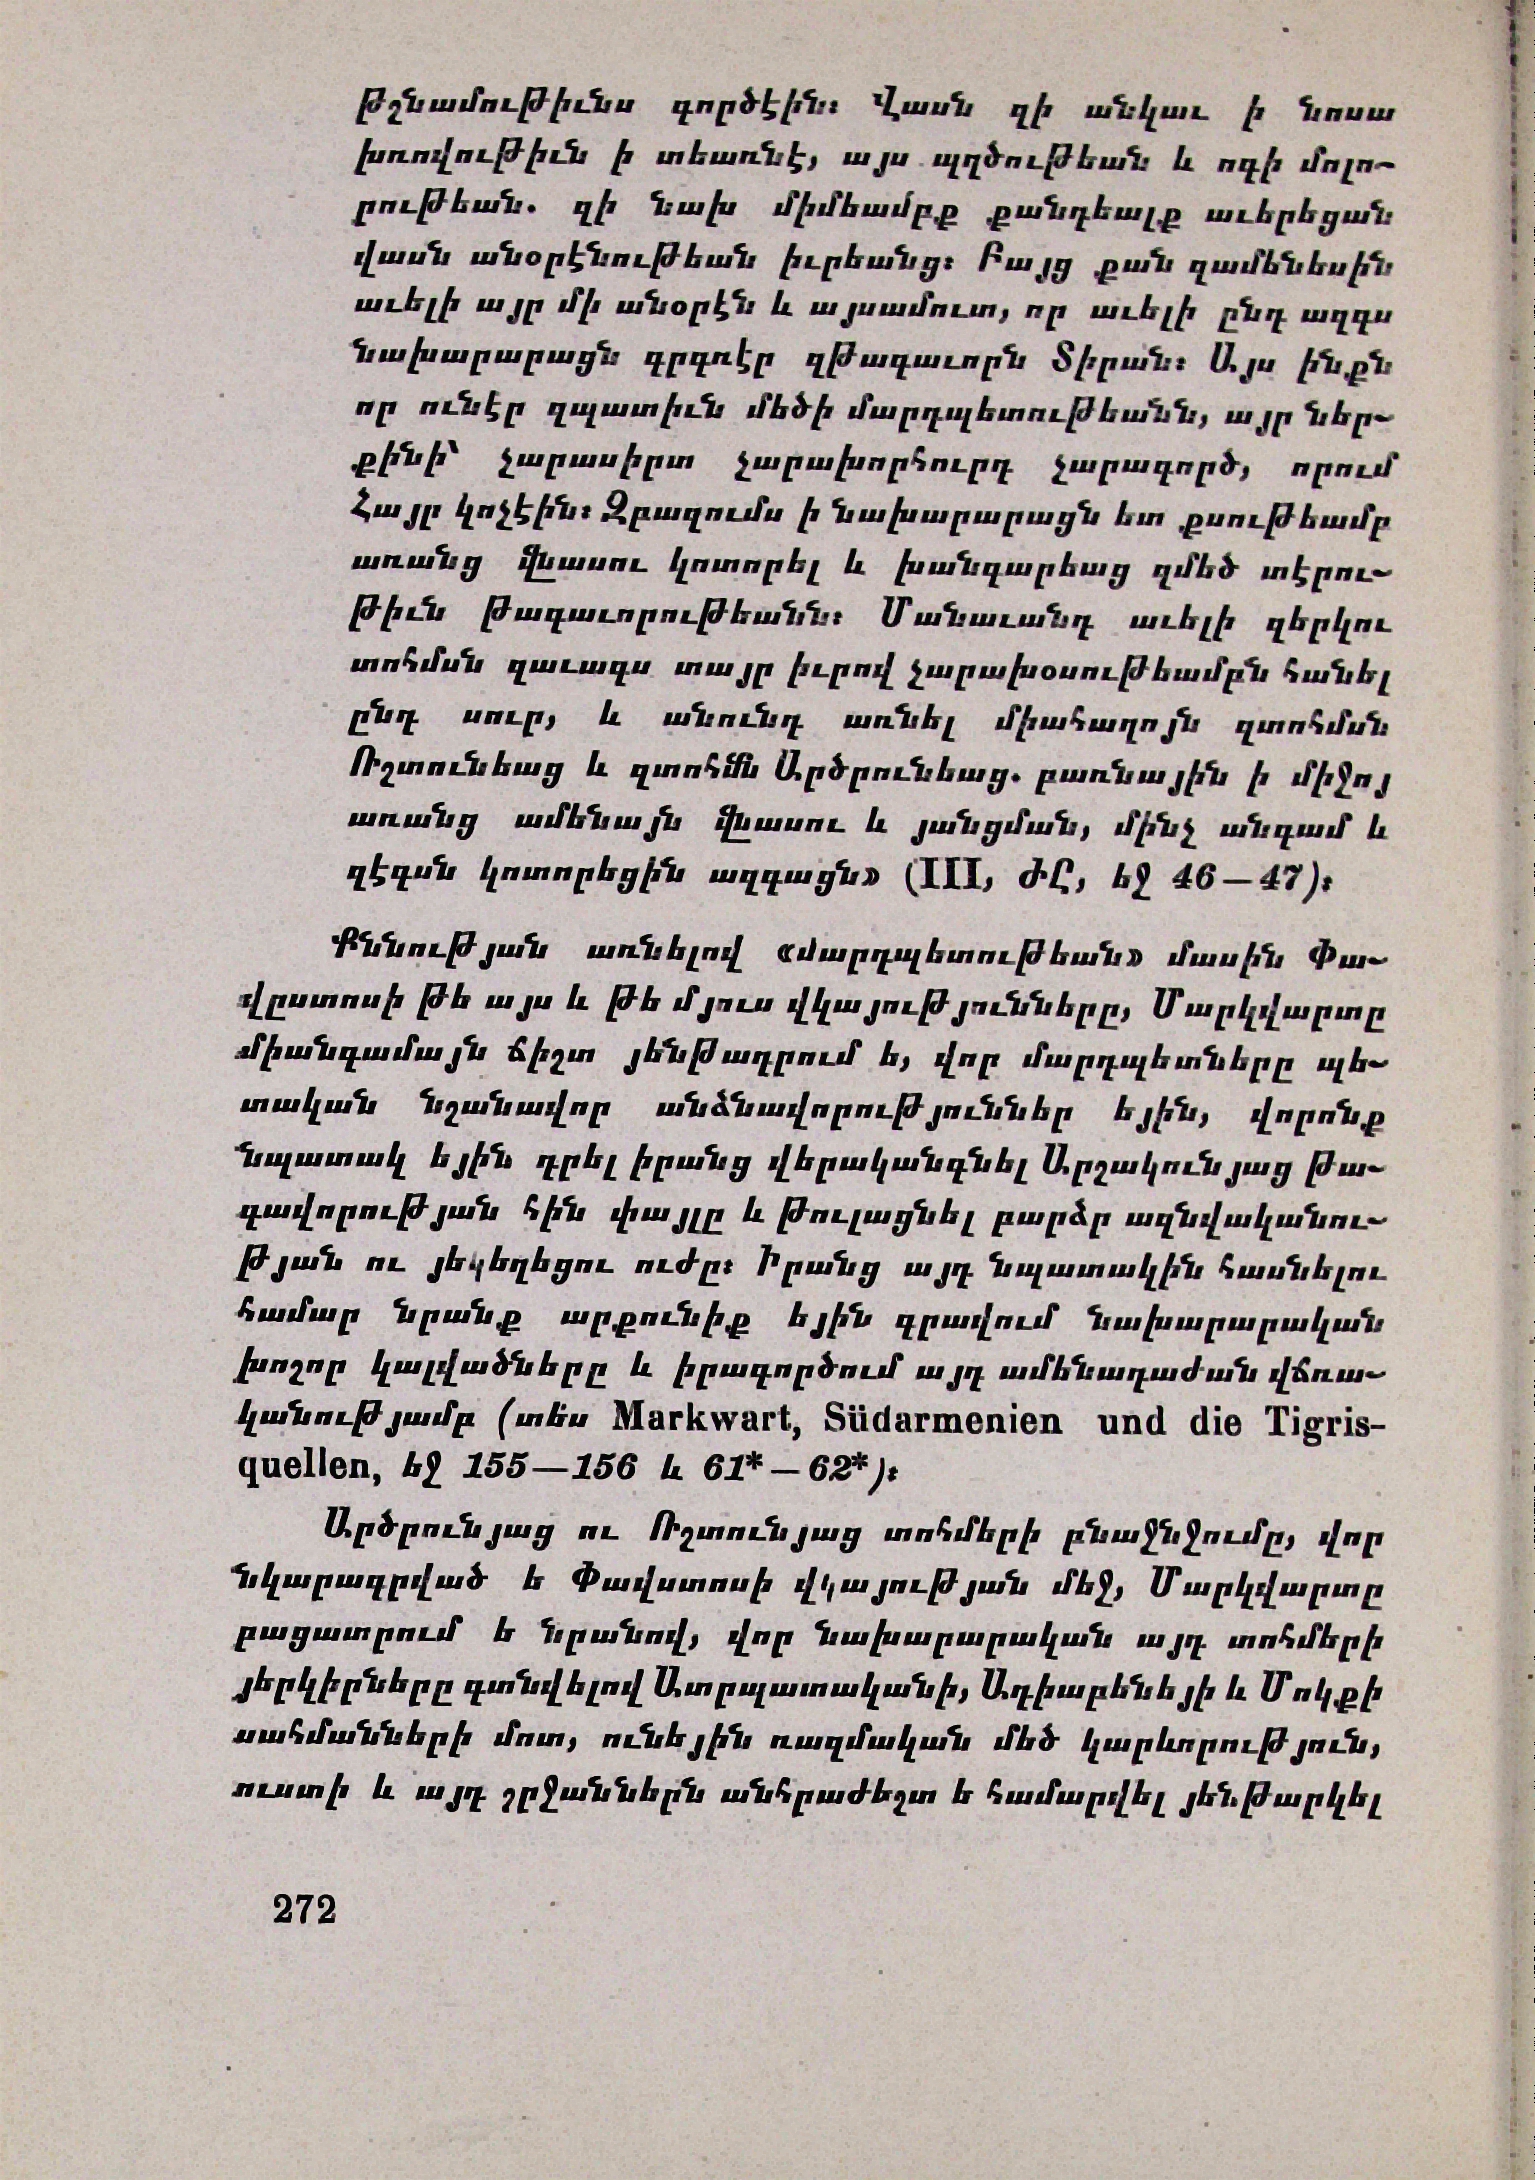 թշնամութիւնս գործէին։ Վասն զի անկաւ ի նոսա
խռովութիւն ի տեառնէ, այս պղծութեան և ոգի մոլո-
րութեան. զի նախ միմեամբք քանդեալք աւերեցան
վասն անօրէնութեան իւրեանց։ Բայց քան զամենեսին
աւելի այր մի անօրէն և այսամուտ, որ աւելի ընդ ազգս
նախարարացն գրգռէր զթագաւորն Տիրան։ Այս ինքն
որ ունէր զպատիւն մեծի մարդպետութեանն, այր ներ-
քինի՝ չարասիրտ չարախորհուրդ չարագործ, որում
Հայր կոչէին։ Զբազումս ի նախարարացն ետ քսութեամբ
առանց վնասու կոտորել և խանգարեաց զմեծ տէրու-
թիւն թագաւորութեանն։ Մանաւանդ աւելի զերկու
տոհմսն զաւագս տայր իւրով չարախօսութեամբն հանել
ընդ սուր, և անունդ առնել միահաղոյն զտոհմսն
Ռշտունեաց և զտոհմն Արծրունեաց. բառնային ի միջոյ
առանց ամենայն վնասու և յանցման, մինչ անգամ և
զէգսն կոտորեցին ազգացն» (III, ԺԸ, եջ 46—47)։
Քննության առնելով «մարդպետութեան» մասին Փա-
վըստոսի թե այս և թե մյուս վկայությունները, Մարկվարտը
միանգամայն ճիշտ յենթադրում ե, վոր մարդպետները պե-
տական նշանավոր անձնավորություններ եյին, վորոնք
նպատակ եյին դրել իրանց վերականգնել Արշակունյաց թա-
գավորության հին փայլը և թուլացնել բարձր ազնվականու-
թյան ու յեկեղեցու ուժը։ Իրանց այդ նպատակին հասնելու
համար նրանք արքունիք եյին գրավում նախարարական
խոշոր կալվածները և իրագործում այդ ամենադաժան վճռա-
կանությամբ (տես Markwart, Südarmenien und die Tigris-
quellen, եջ 155—156 և 61*—62*)։
Արծրունյաց ու Ռշտունյաց տոհմերի բնաջնջումը, վոր
նկարագրված ե Փավստոսի վկայության մեջ, Մարկվարտը
բացատրում ե նրանով, վոր նախարարական այդ տոհմերի
յերկիրները գտնվելով Ատրպատականի, Ադիաբենեյի և Մոկքի
սահմանների մոտ, ունեյին ռազմական մեծ կարևորություն,
ուստի և այդ շրջաններն անհրաժեշտ ե համարվել յենթարկել
272